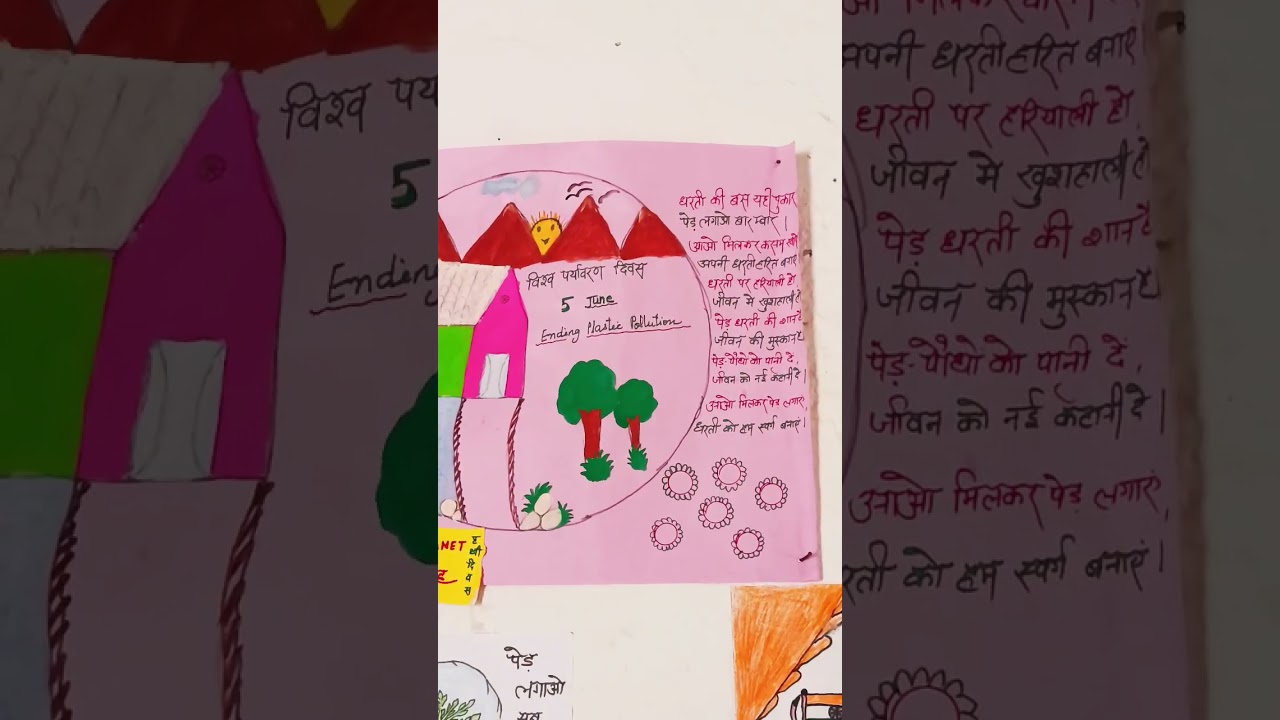 विश्व पर्यावरण दिवस
5 June
Ending Plastic Pollution
धरती की बस यही पुकार
पेड़ लगाओ बारम्बार।
आओ मिलकर कसम खाये
अपनी धरती हरित बनाएं
धरती पर हरियाली हो
जीवन मे खुशहाली हो
पेड़ धरती की शान है
जीवन की मुस्कान है
पेड़-पौधो को पानी दे,
जीवन को नई कहानी दे।
आओ मिलकर पेड़ लगाए,
धरती को हम स्वर्ग बनाएं।
NET
पृथ्वी दिवस
पेड़
लगाओ